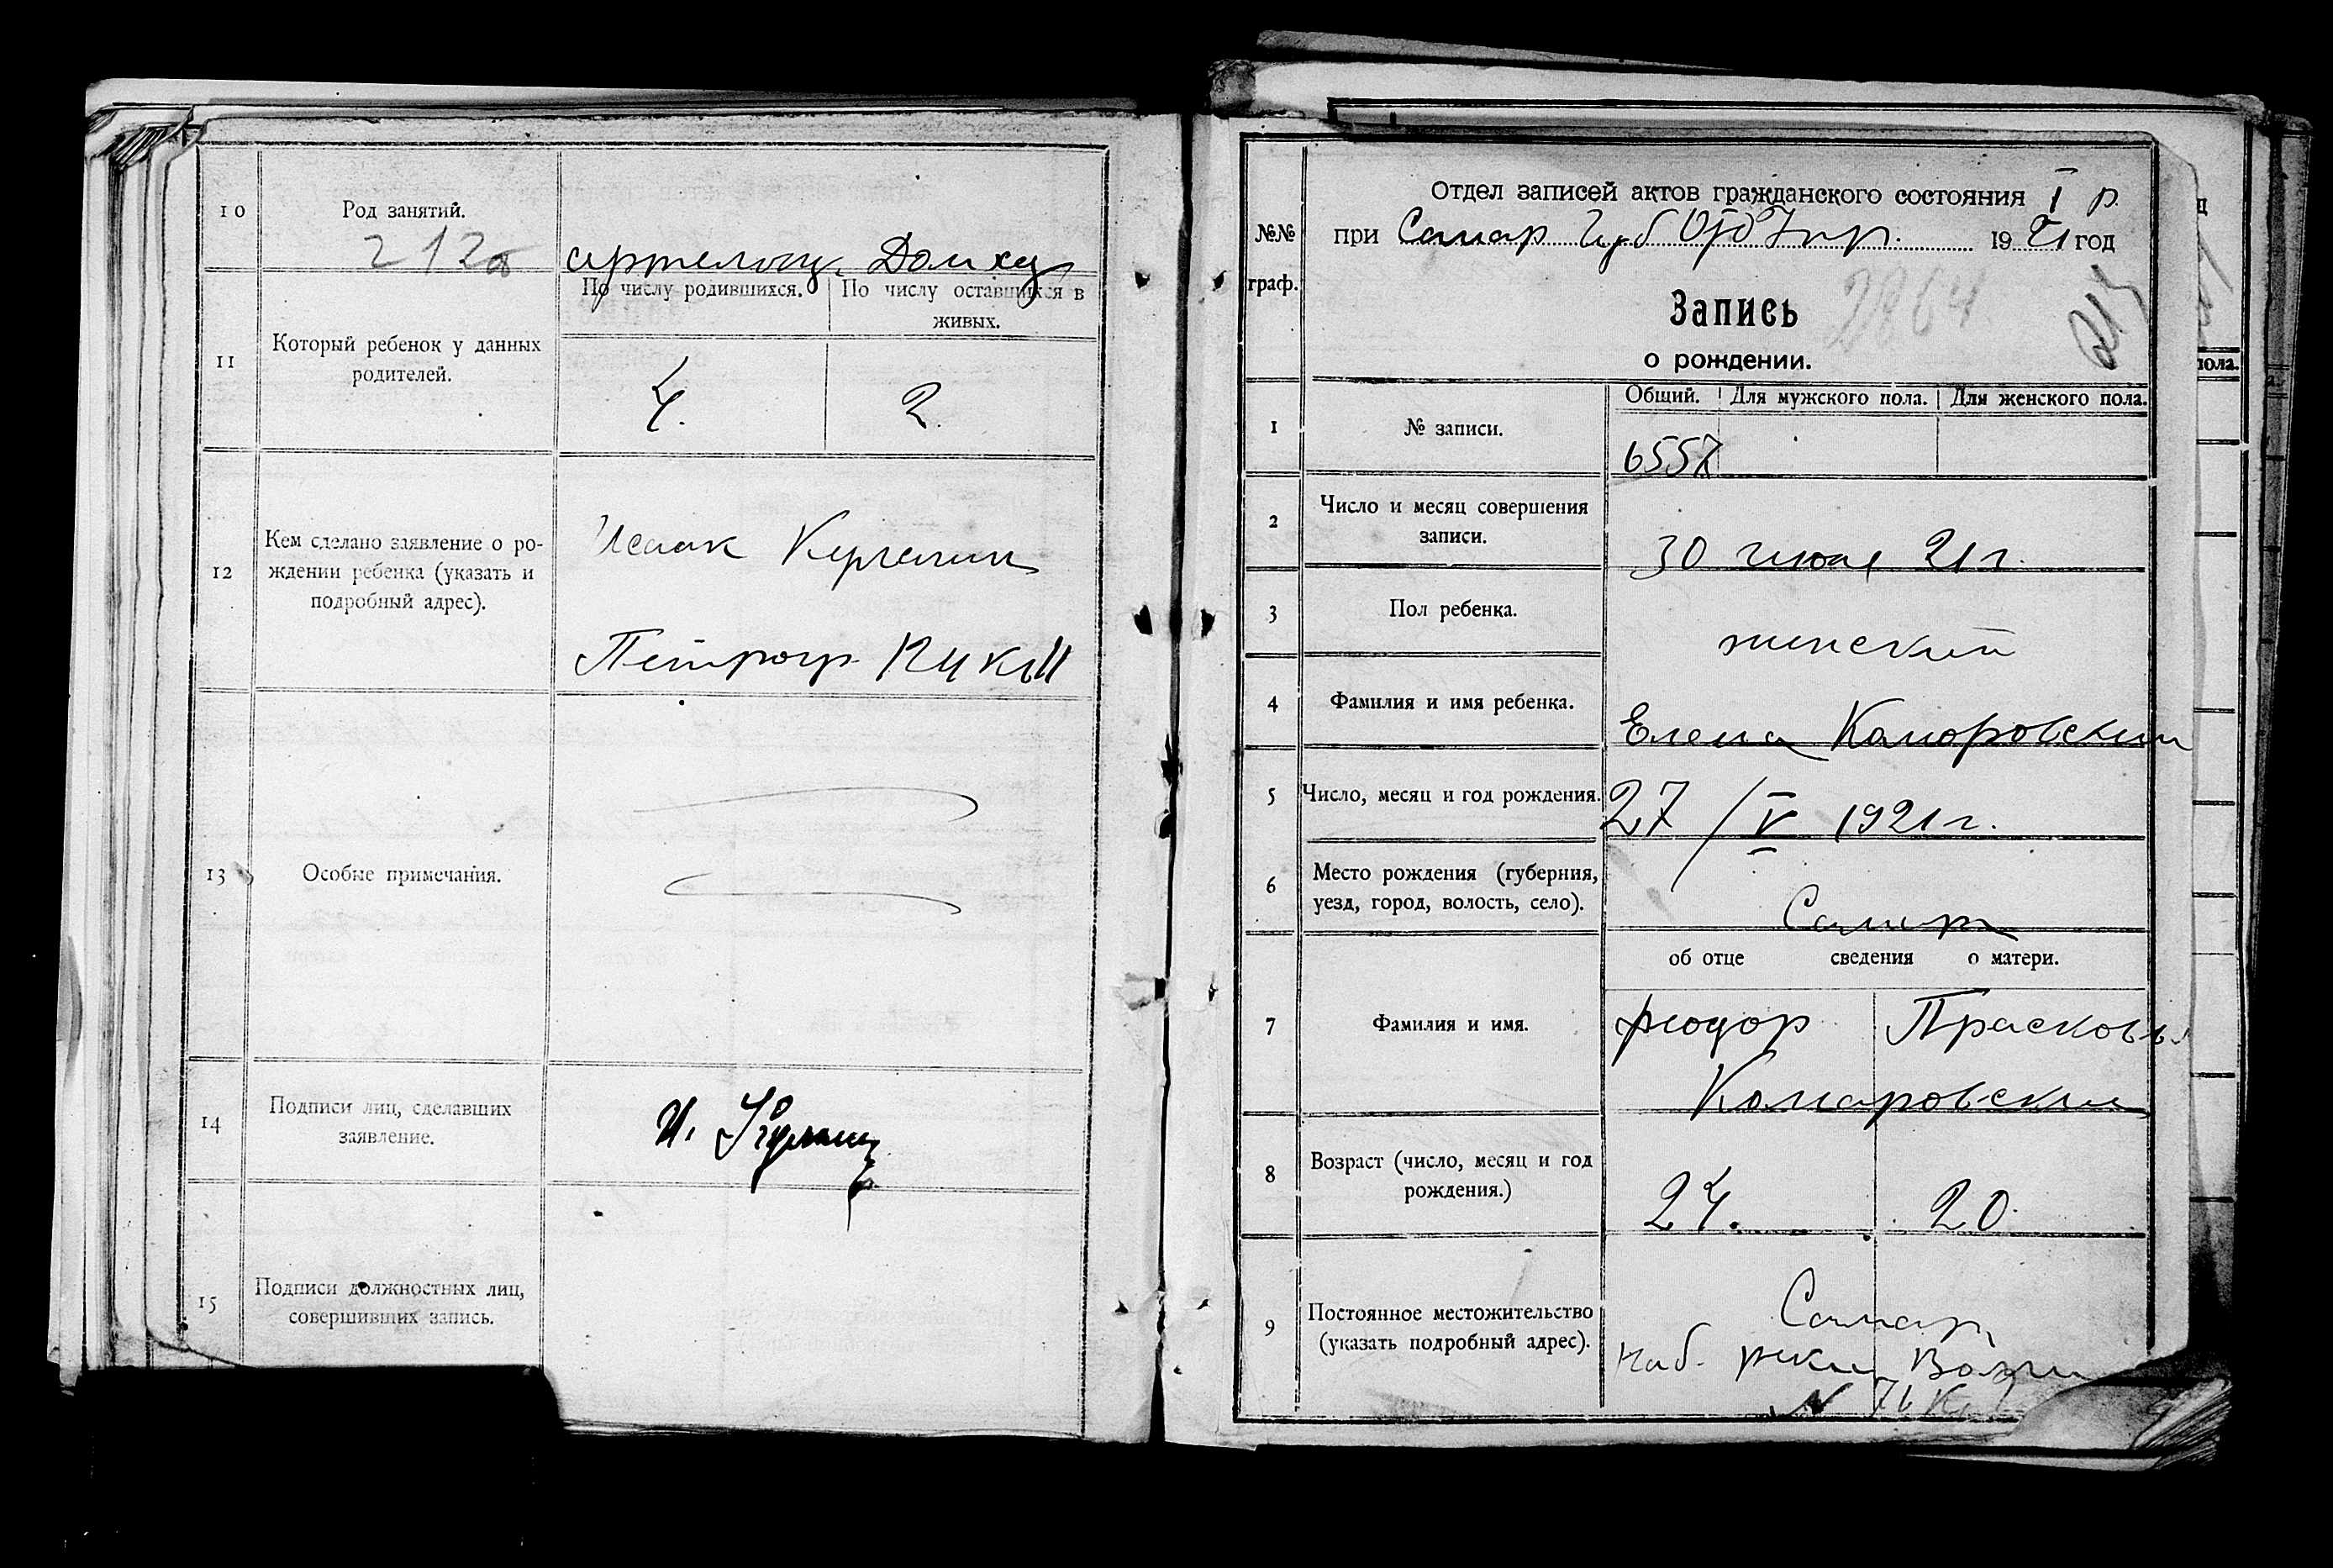 10
Род занятий.
212б
Домхоз
11
Который ребенок у данных
родителей.
По числу родившихся.
По числу оставшихся в
живых.
4.
2.
12
Кем сделано заявление о ро-
ждении ребенка (указать и
подробный адрес).
Исаак
Петрогр
13
Особые примечания.
14
Подписи лиц, сделавших
заявление.
И.
15
Подписи должностных лиц,
совершивших запись.
№№
граф.
Отдел записей актов гражданского состояния I р.
при Самар Губ Отд Упр. 1921 год
2864
Запись
о рождении.
1
№ записи.
Общий. Для мужского пола. Для женского пола.
6557
2
Число и месяц совершения
записи.
30 21 г.
3
Пол ребенка.
женский
4
Фамилия и имя ребенка.
Елена Комаровский
5
Число, месяц и год рождения.
27/V 1921 г.
6
Место рождения (губерния,
уезд, город, волость, село).
Самара
об отце сведения о матери.
7
Фамилия и имя.
Федор Прасковья
Комаровский
8
Возраст (число, месяц и год
рождения.)
24. 20.
9
Постоянное местожительство
(указать подробный адрес).
Самара
Наб. реки Волги
№ 76
пола.